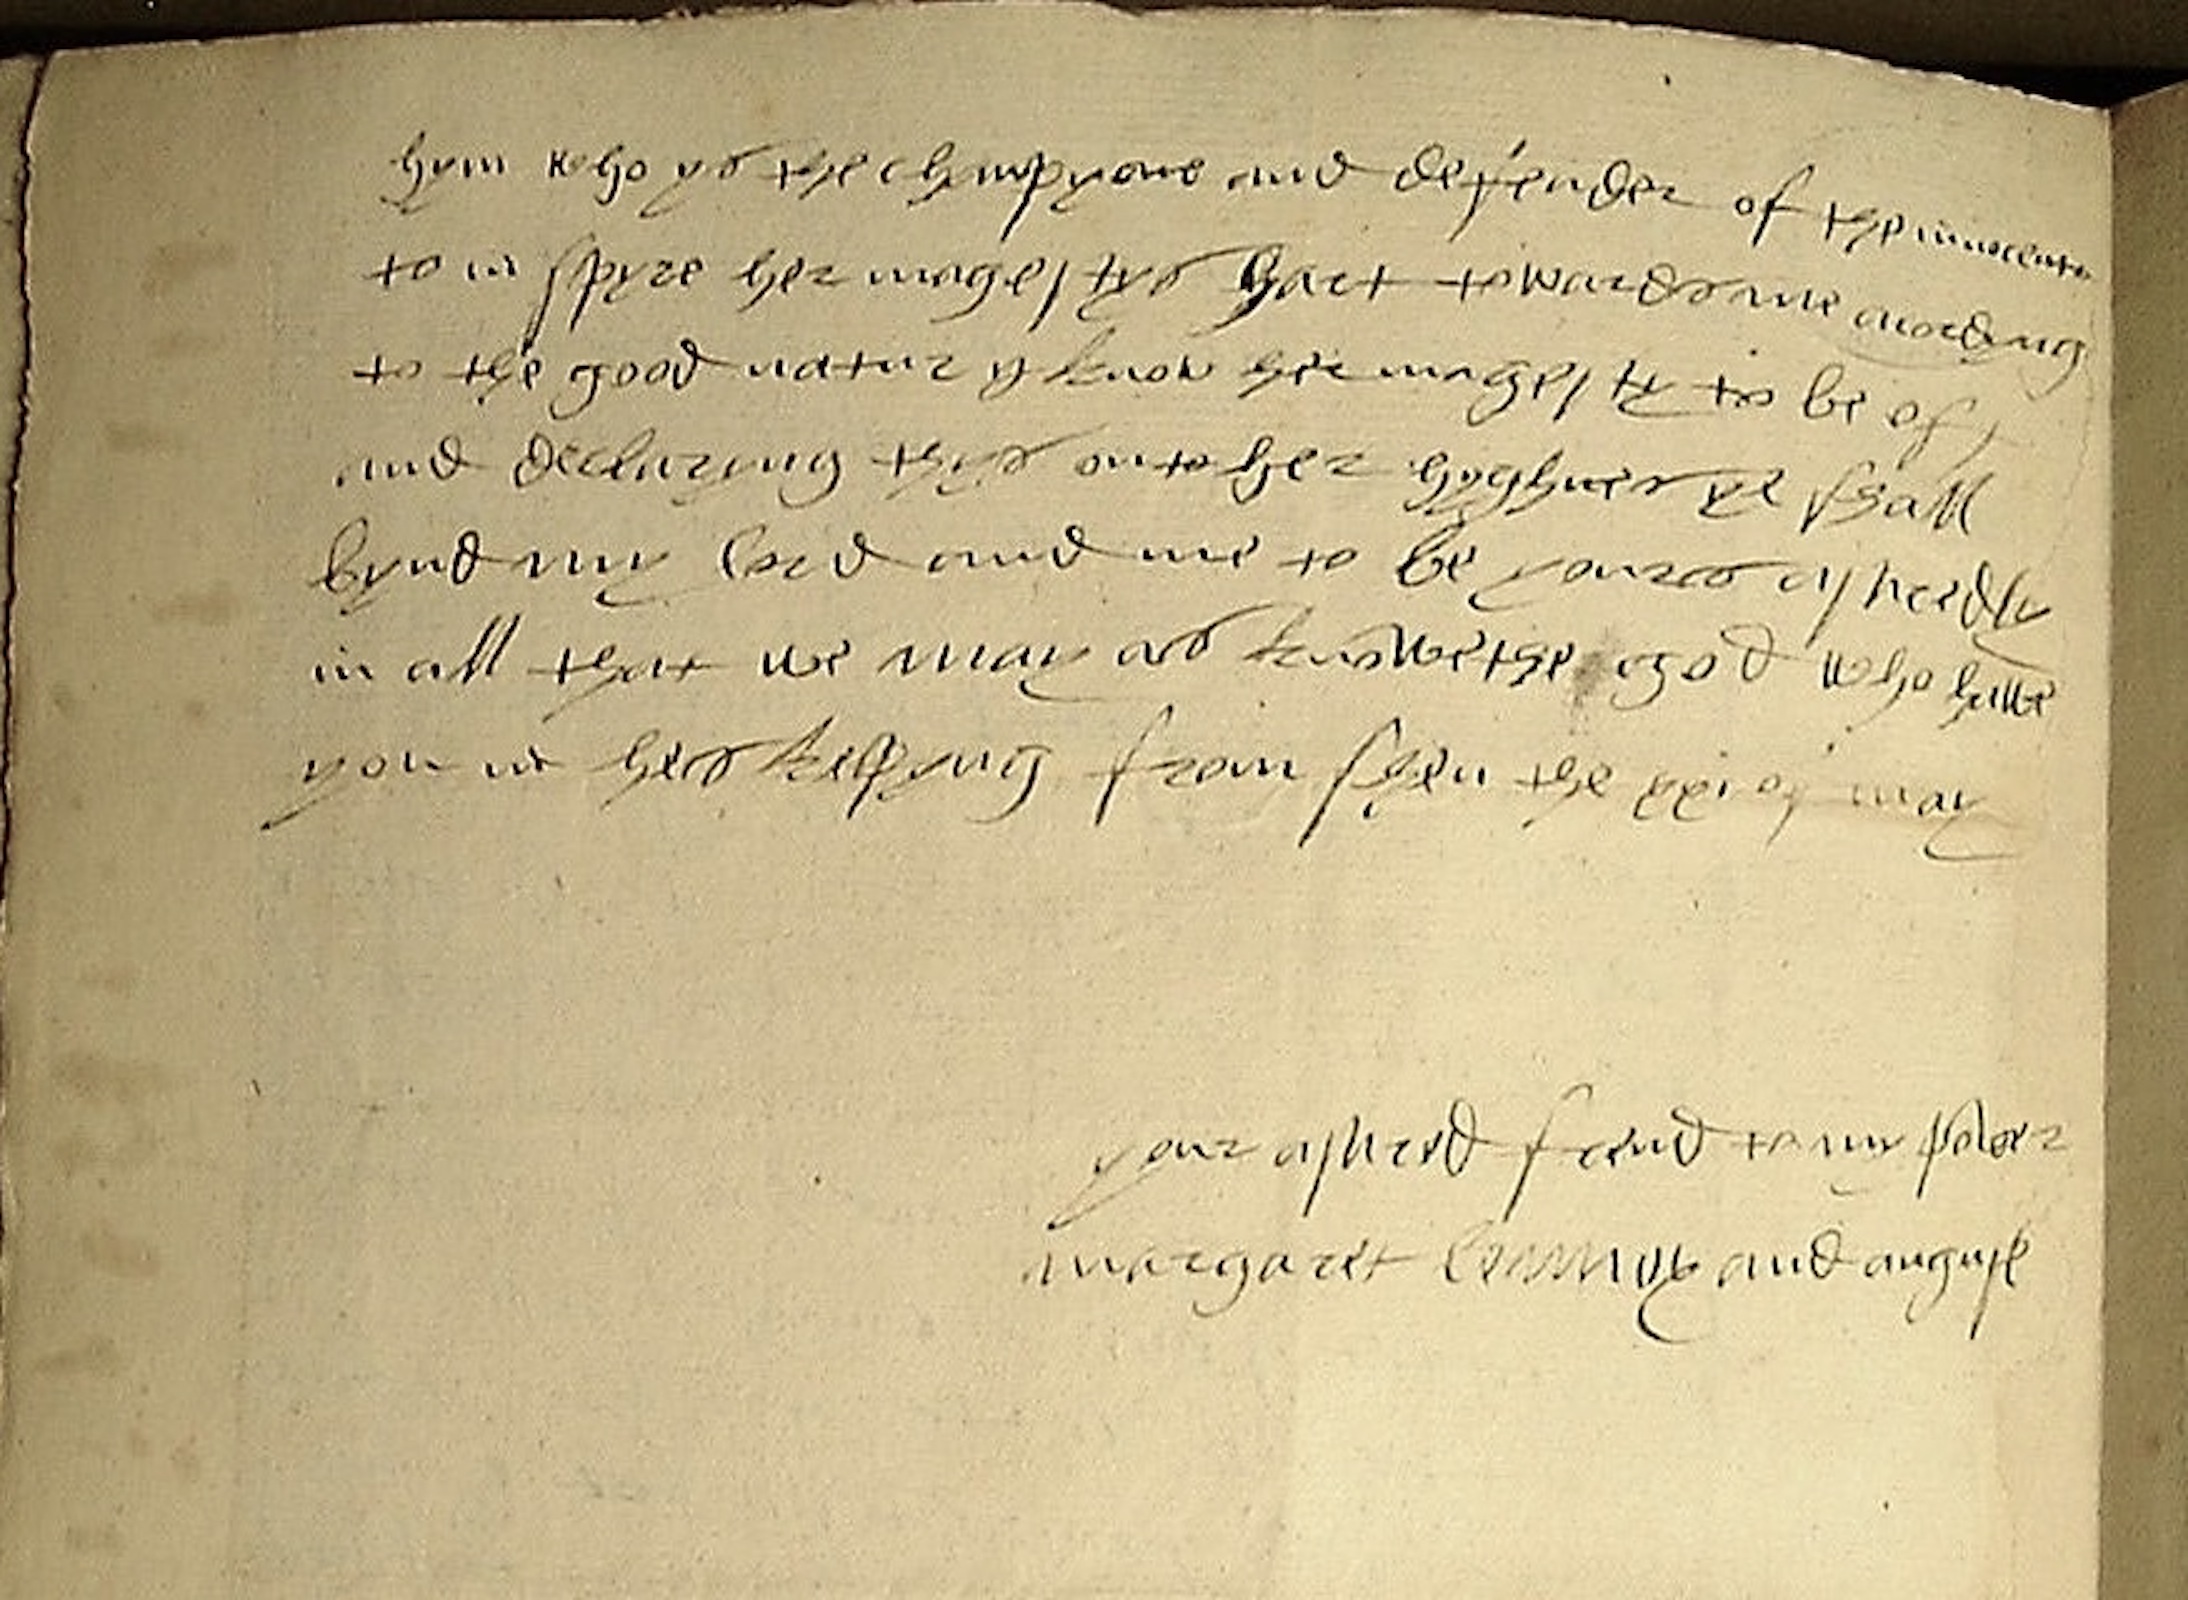 hym who ys the champyone and defender of the innocente
to in spyre her magestys hart towards me acordyng
to the good natur y know her magesty to be of
and declaryng thys onto her hyghnes ye shall
bynd my lord and me to be yours assuredly
in all that we may as knowethe god who have
you in hes kepyng from shen the xxi of may
your assured frend to my power
margaret lennox and anguse